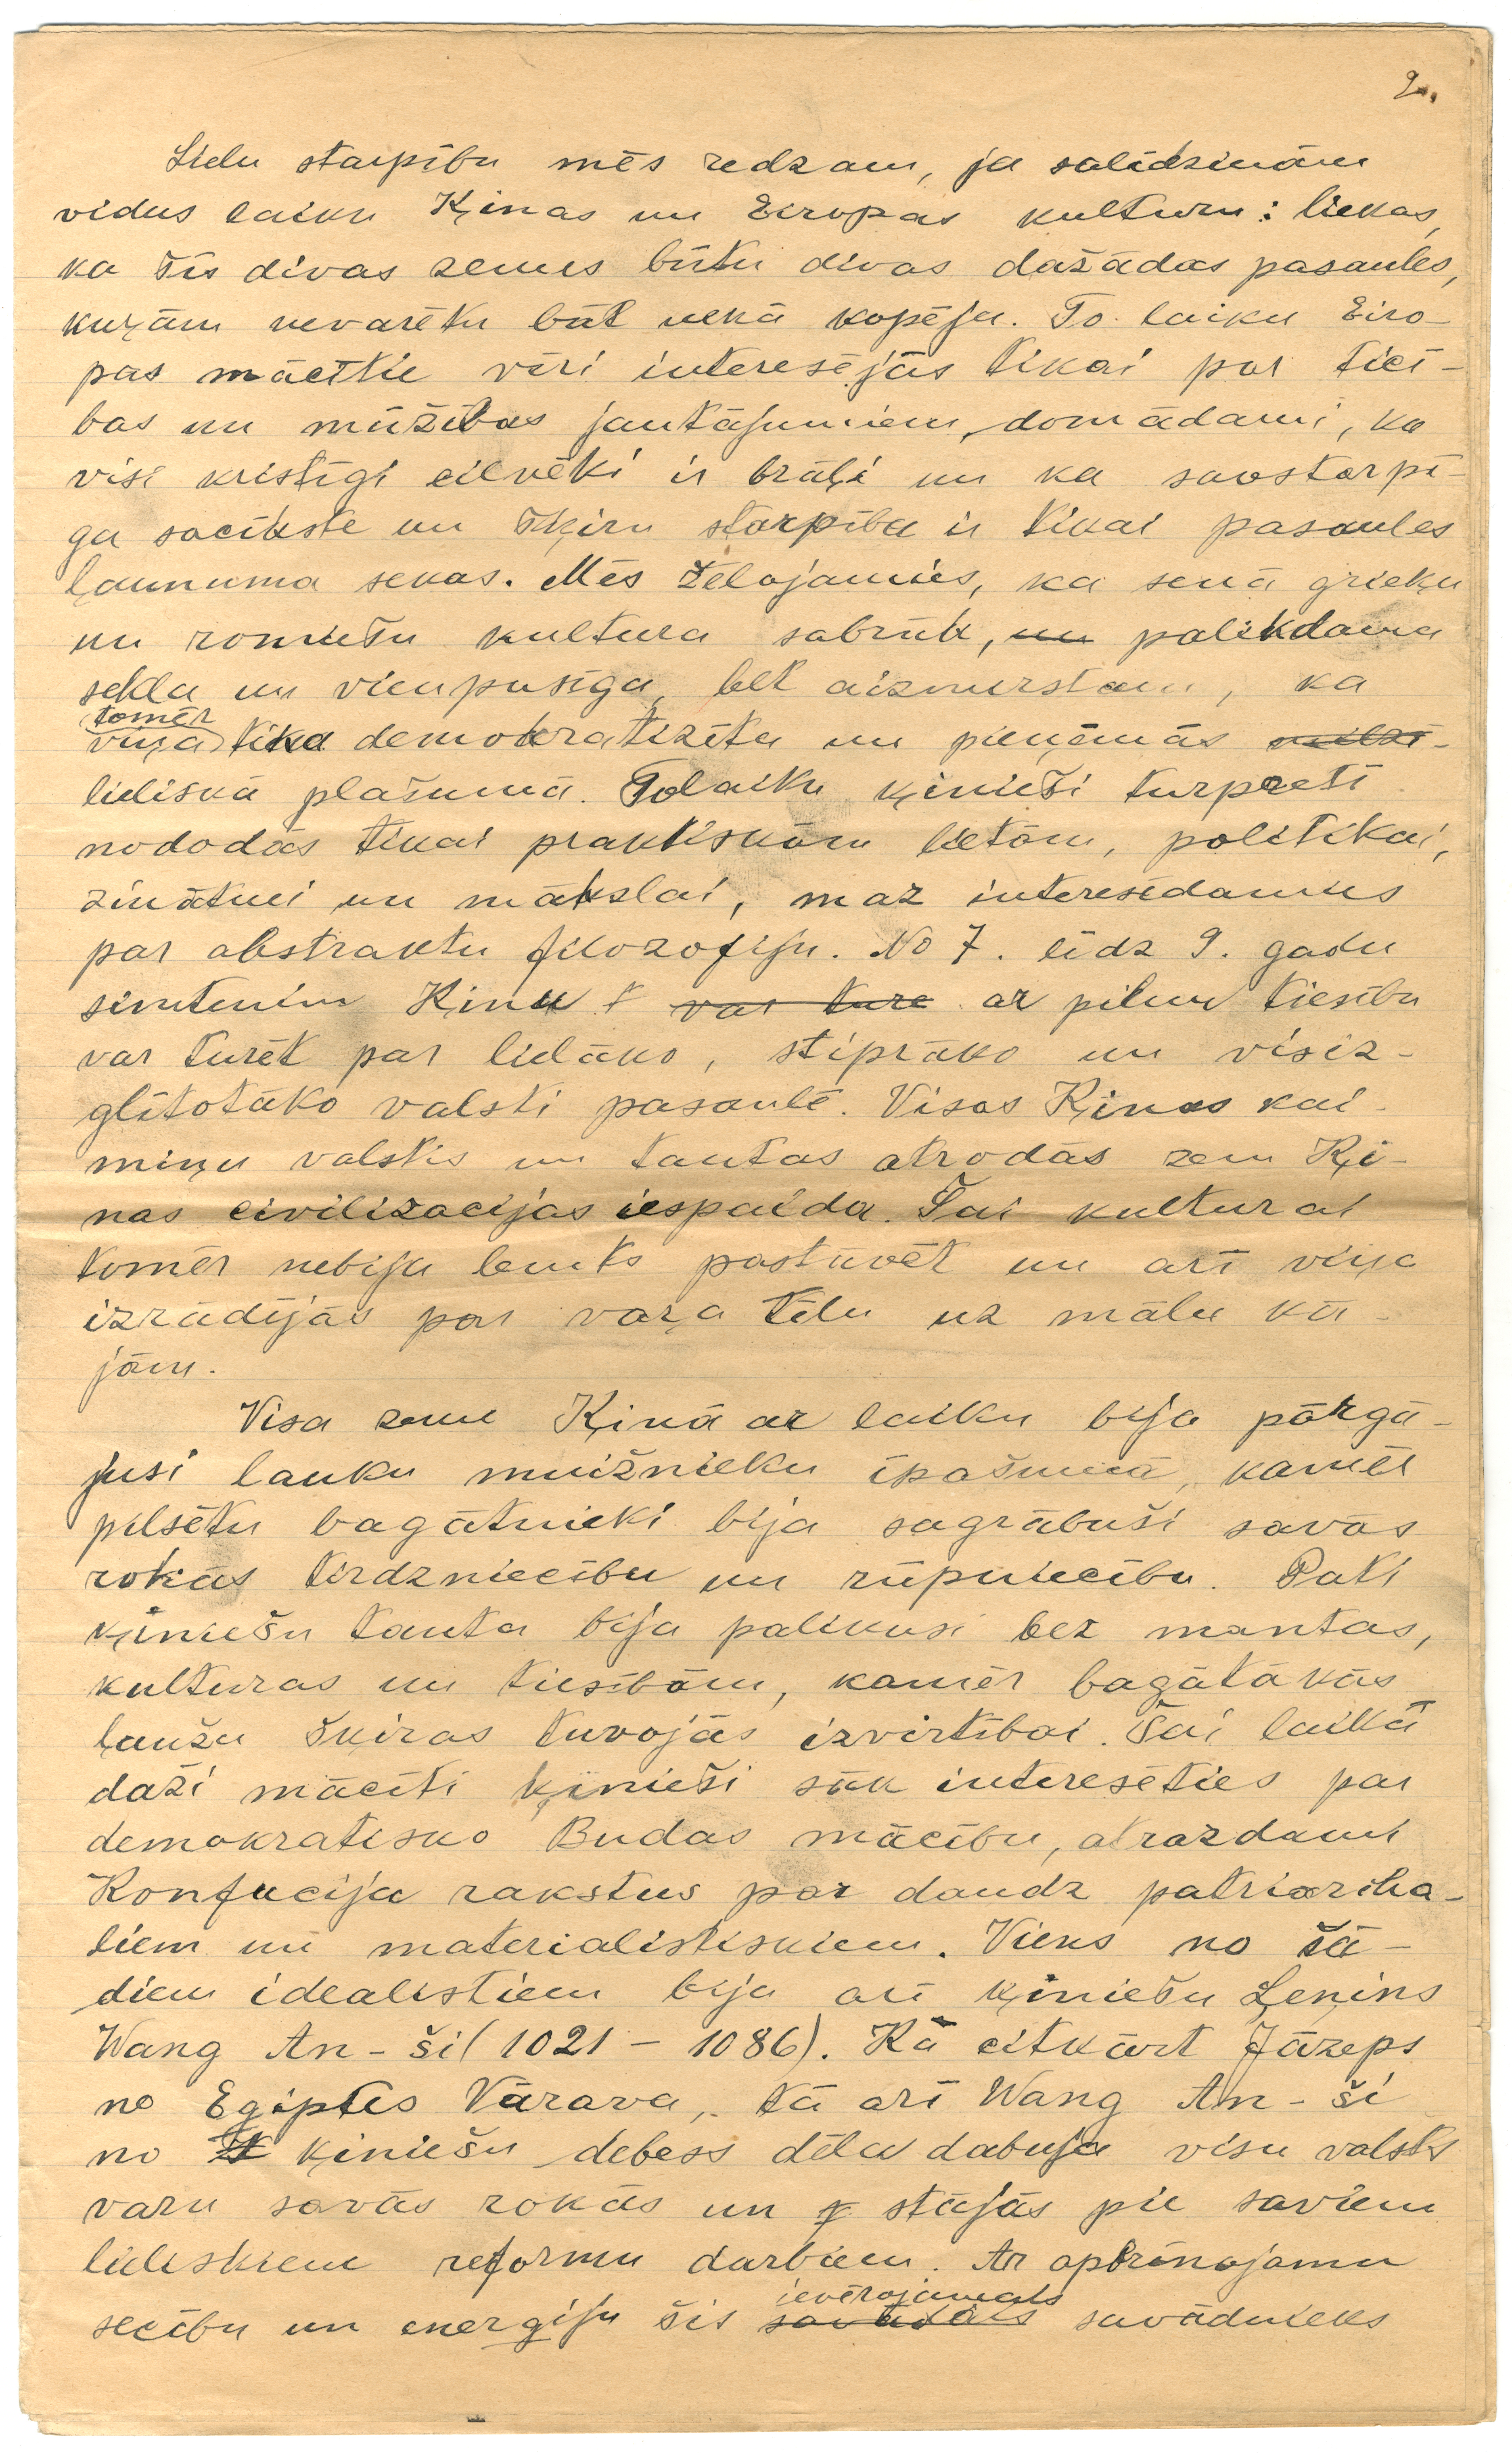 2.
Lielu starpību mēs redzam, ja salīdzinām
vidus laiku Ķinas un Eiropas kulturu: liekas,
ka šīs divas zemes būtu divas dažādas pasaules,
kuŗām nevarētu būt nekā kopēja. To laiku Eiro-
pas mācītie vīri interesējās tikai par tici-
bas un mūžības jautājumiem, domādami, ka
visi kristīgi cilvēki ir brāļi un ka savstarpē-
ga sacīkste un šķiru starpība ir tikai pasaules
ļaunuma sekas. Mēs žēlojamies, ka senā grieķu
un romiešu kultura sabrūk, un palikdama
sekla un vienpusīga, bet aizmirstam, ka
tomēr
viņa tika demokratizēta un pieņēmās milzī-
lieliskā plašumā. Tolaiku ķinieši turpreti
nododās tikai praktiskām lietām, politikai,
zinātnei un mākslai, maz interesēdamies
par abstraktu filozofiju. No 7. līdz 9. gadu
simtenim Ķinu t var ture ar pilnu tiesību
var turēt par lielāko, stiprāko un visiz-
glītotāko valsti pasaulē. Visas Ķinas kai-
miņu valstis un tautas atrodās zem Ķi-
nas civilizacijas iespaida. Šai kulturai
tomēr nebija lemts pastāvēt un arī viņa
izrādījās par vaŗa tēlu uz mālu kā-
jām.
Visa zeme Ķinā ar laiku bija pārgā-
jusi lauku muižnieku īpašumā, kamēr
pilsētu bagātnieki bija sagrābuši savās
rokās tirdzniecību un rūpniecību. Pati
ķiniešu tauta bija palikusi bez mantas,
kulturas un tiesībām, kamēr bagātākās
ļaužu šķiras tuvojās izvirtībai. Šai laikā
daži mācīti ķinieši sāk interesēties par
demokratisko Budas mācību, atrazdami
Konfucija rakstus par daudz patriarcha-
liem un materialistiskiem. Viens no šā-
diem idealistiem bija arī ķiniešu Ļeņins
Wang An-ši (1021 – 1086). Kā citkārt Jāzeps
no Egiptes Vārava, tā arī Wang An-ši
no ķiniešu debess dēla dabuja visu valsts
varu savās rokās un stājās pie saviem
lieliskiem reformu darbiem. Ar apbrīnojamu
ievērojamais
secību un energiju šis savādais savādnieks